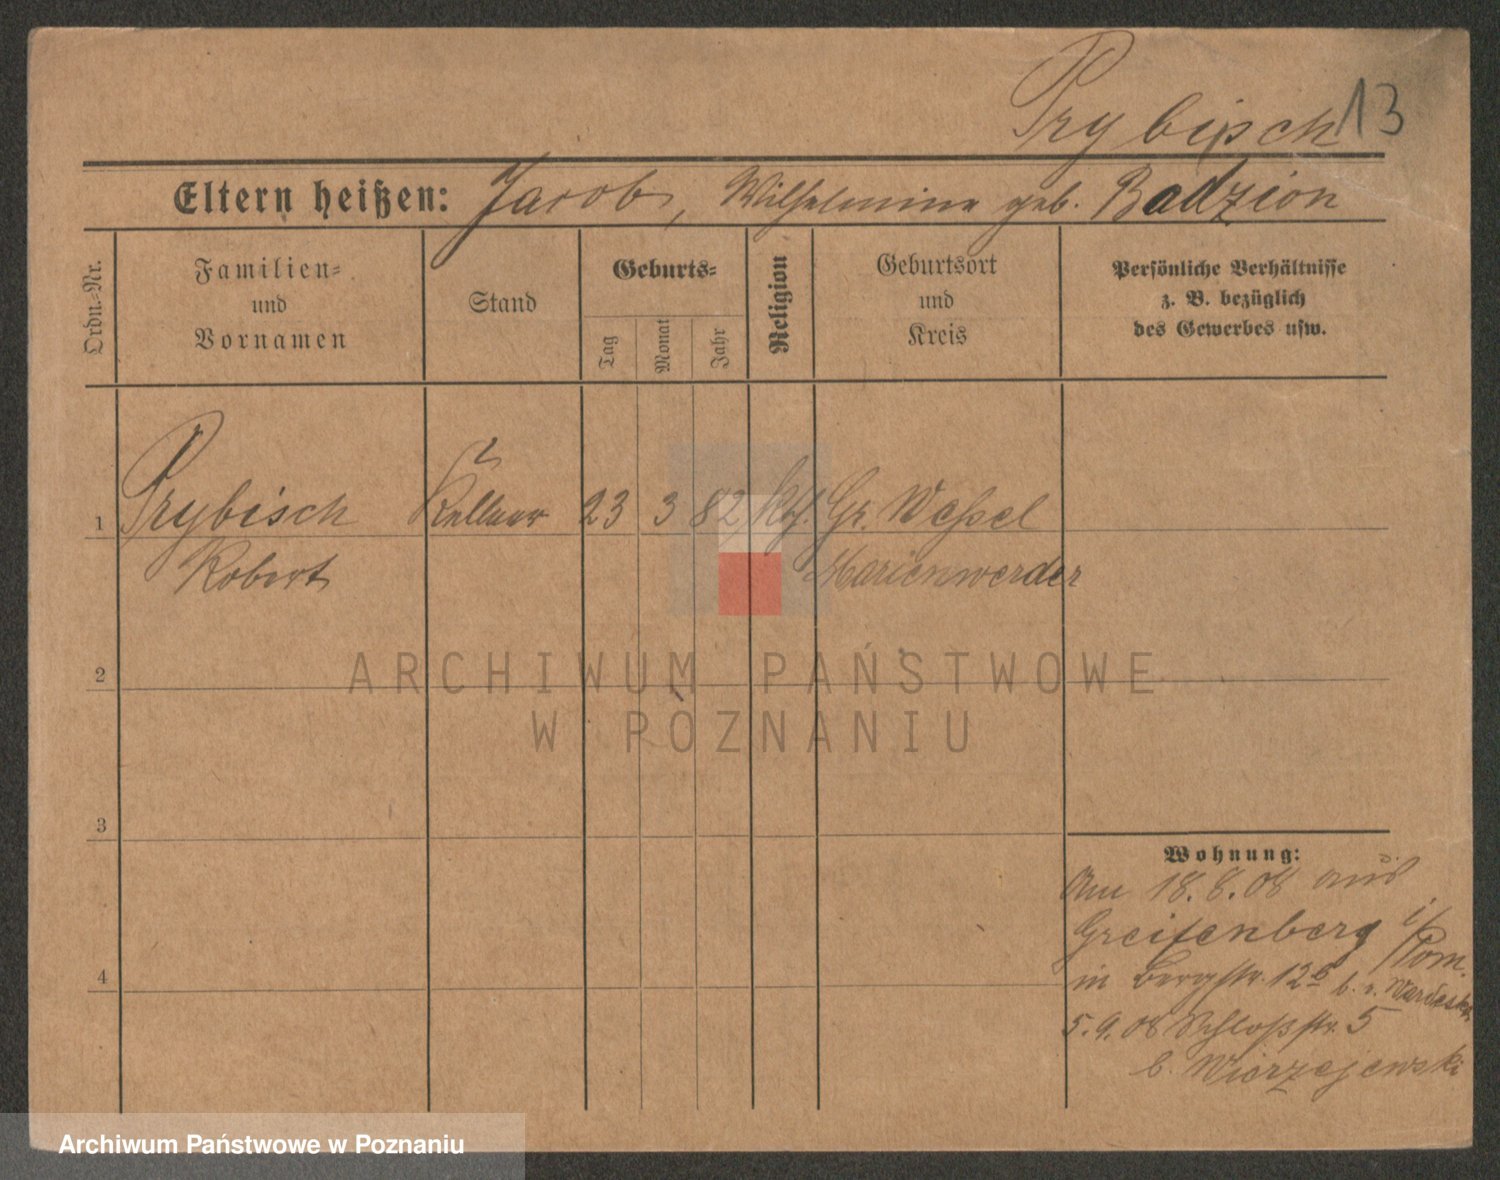 Prybisch 13
Eltern heißen: Jacob, Wilhelmine geb. Badzion
Ordn.-Nr.
Familien-
und
Vornamen
Stand
Geburts-
Tag
Monat
Jahr
Religion
Geburtsort
und
Kreis
Persönliche Verhältnisse
z. B. bezüglich
des Gewerbes usw.
1 Prybisch Kellner 23 3 82 kth. Gr. Weßel
Robert Marienwerder
2
3
4
Wohnung:
Am 18.8.08 aus
Greifenberg i/Pom.
in Bergstr. 12b b.
5.9.08 Schloßstr. 5
b. Wierzejewski
ARCHIWUM PAŃSTWOWE
W POZNANIU
Archiwum Państwowe w Poznaniu